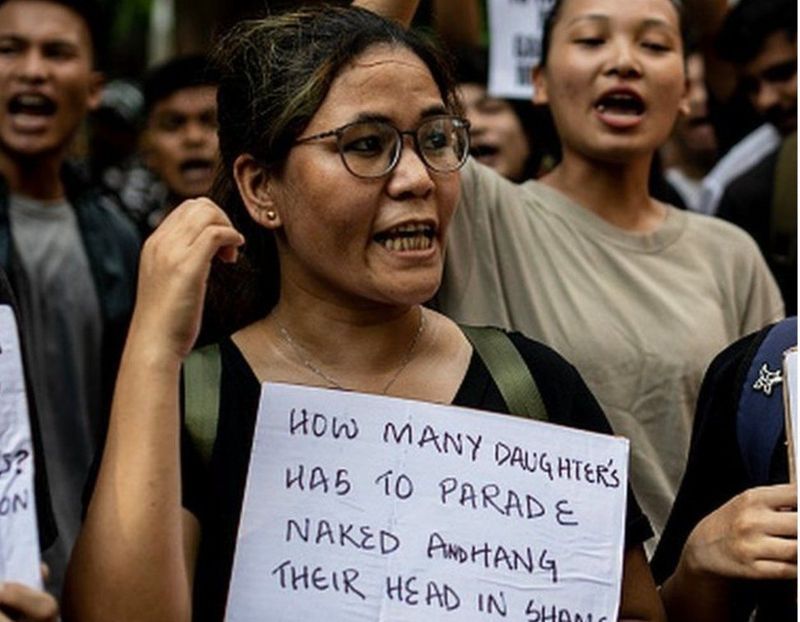 HOW MANY DAUGHTER'S
HAS TO PARADE
NAKED AND HANG
THEIR HEAD IN
S?
ON